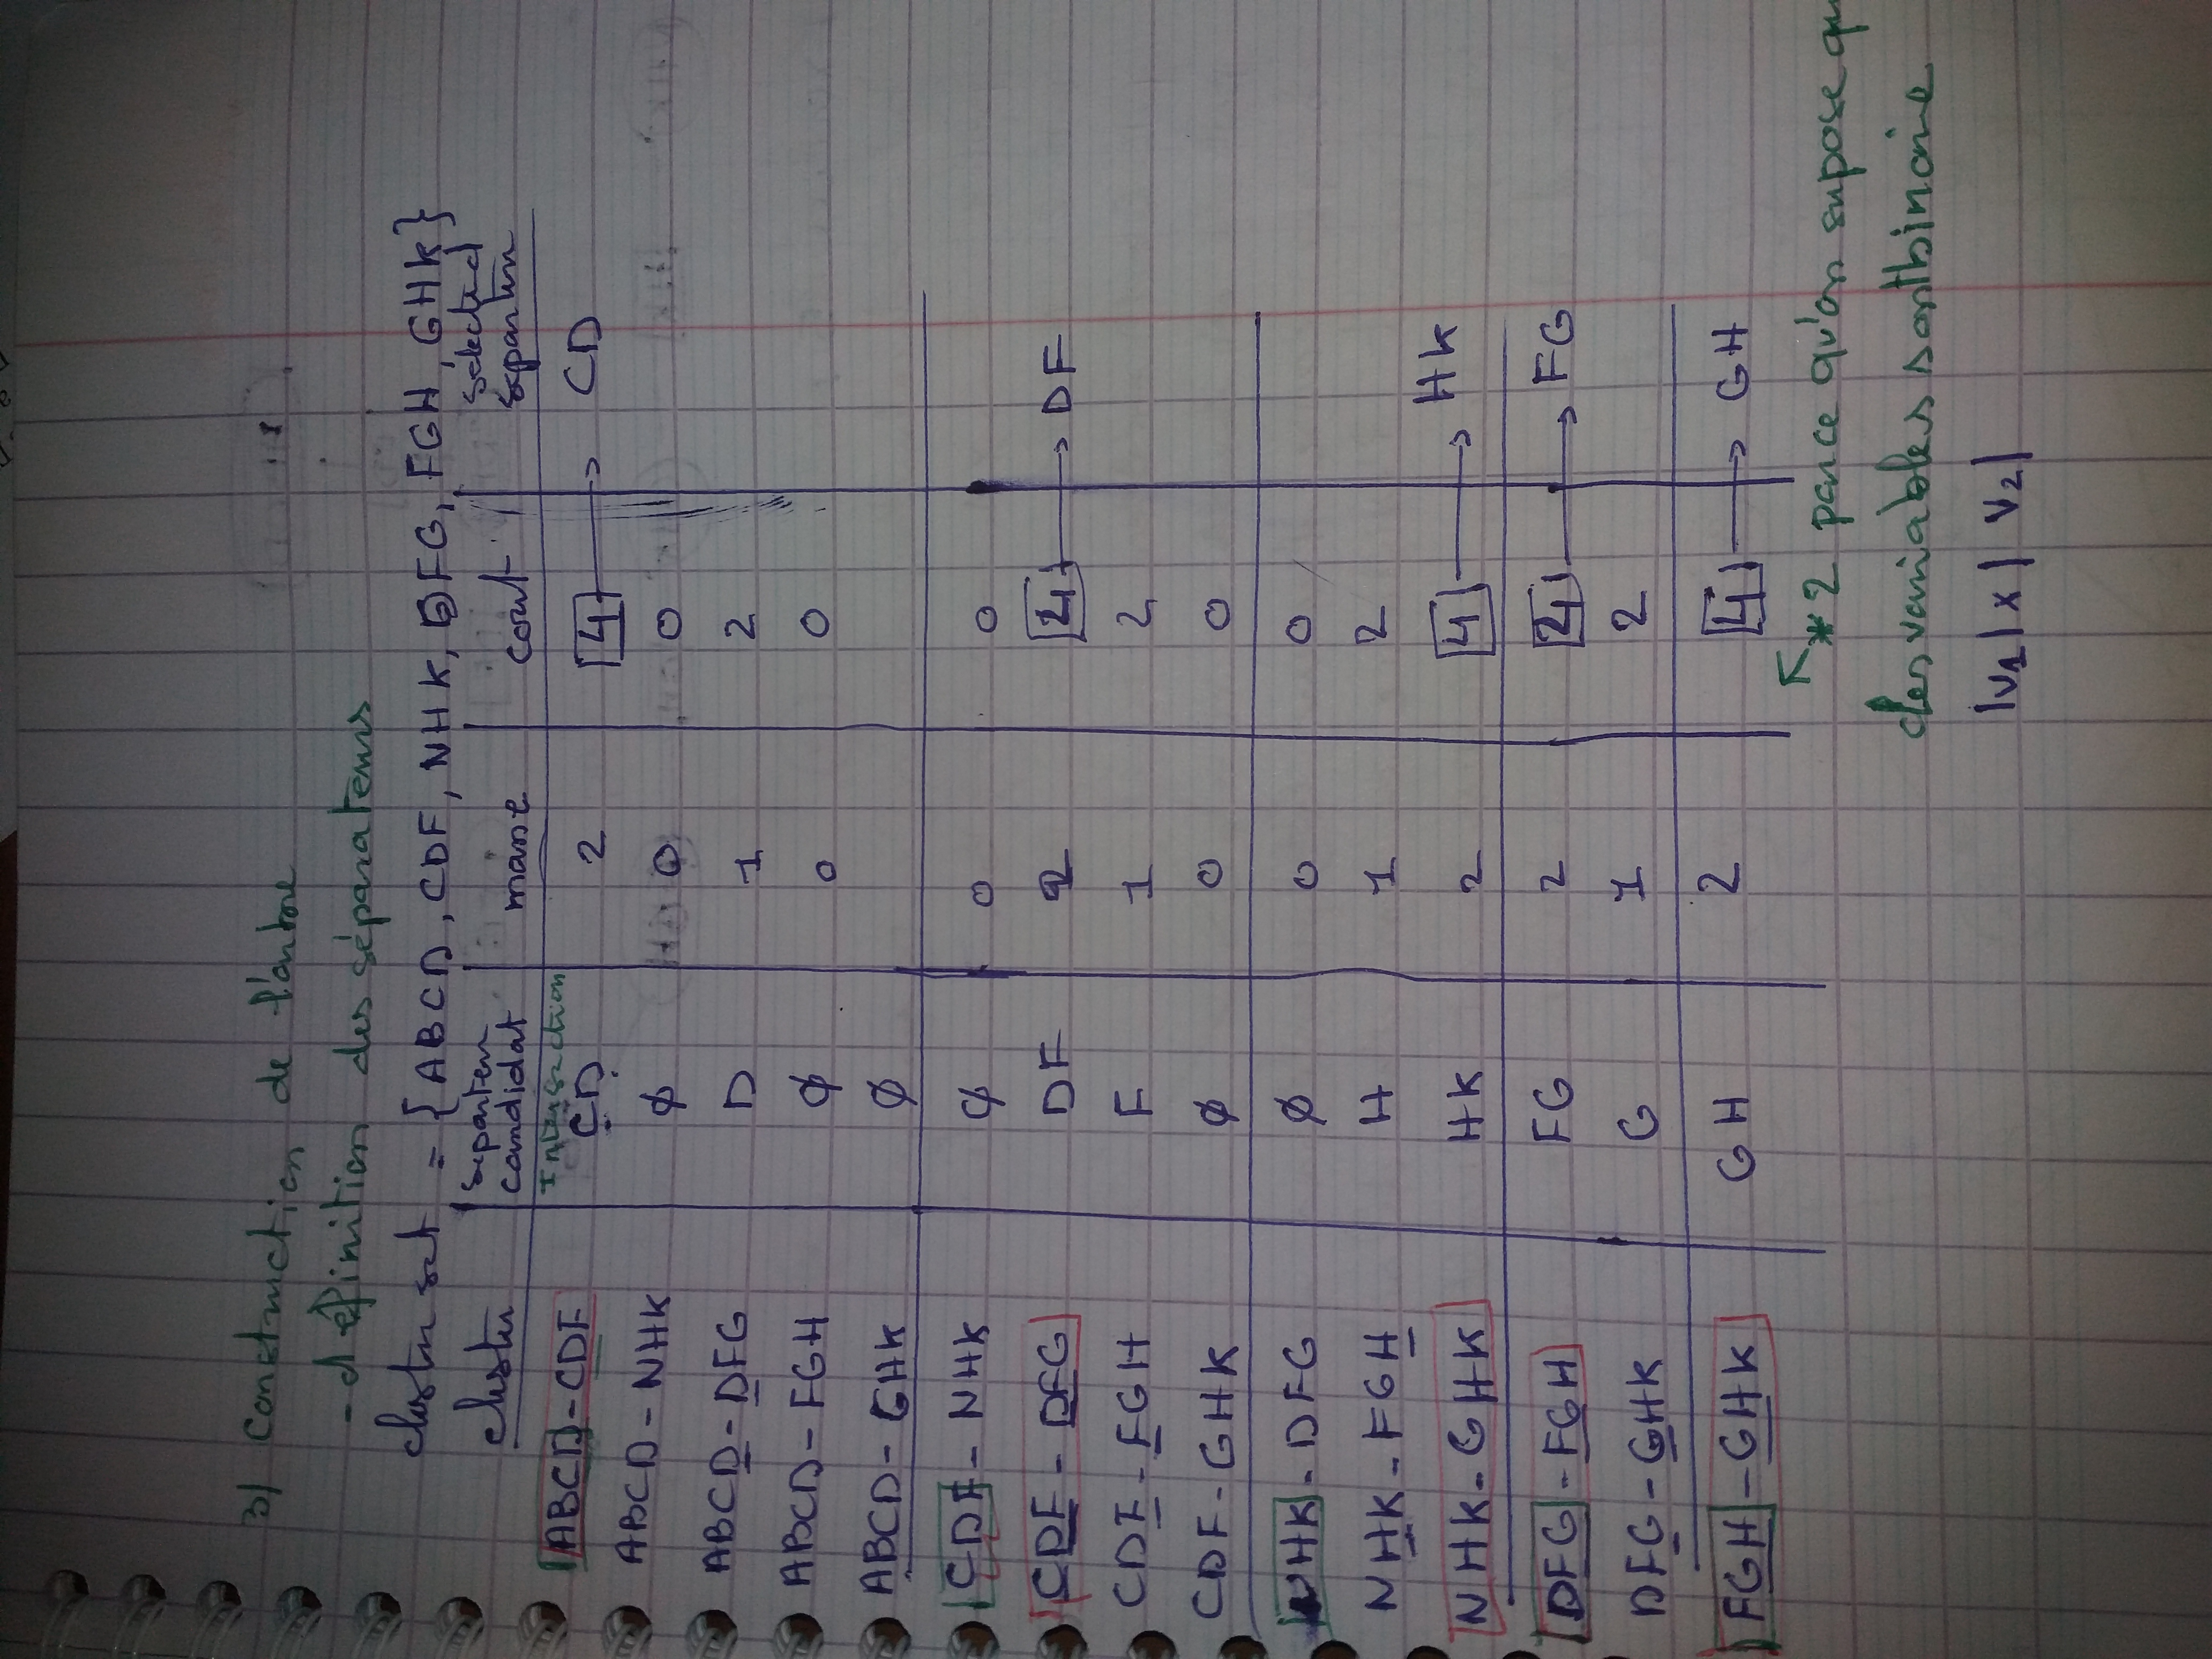 3) Construction de l'arbre
- définition des séparateurs
cluster set = {ABCD, CDF, NHK, DFG, FGH, GHK}
cluster séparateur candidat masse cout selected separateur
Intersection
ABCD-CDF CD 2 4 → CD
ABCD-NHK ϕ 0 0
ABCD-DFG D 1 2
ABCD-FGH ϕ 0 0
ABCD-GHK ϕ
CDF-NHK ϕ 0 0
CDF-DFG DF 2 4 → DF
CDF-FGH F 1 2
CDF-GHK ϕ 0 0
NHK-DFG ϕ 0 0
NHK-FGH H 1 2
NHK-GHK HK 2 4 → HK
DFG-FGH FG 2 4 → FG
DFG-GHK G 1 2
FGH-GHK GH 2 4 → GH
*2 parce qu'on supose qu
les variables sont binaire
|v1| x | V2|